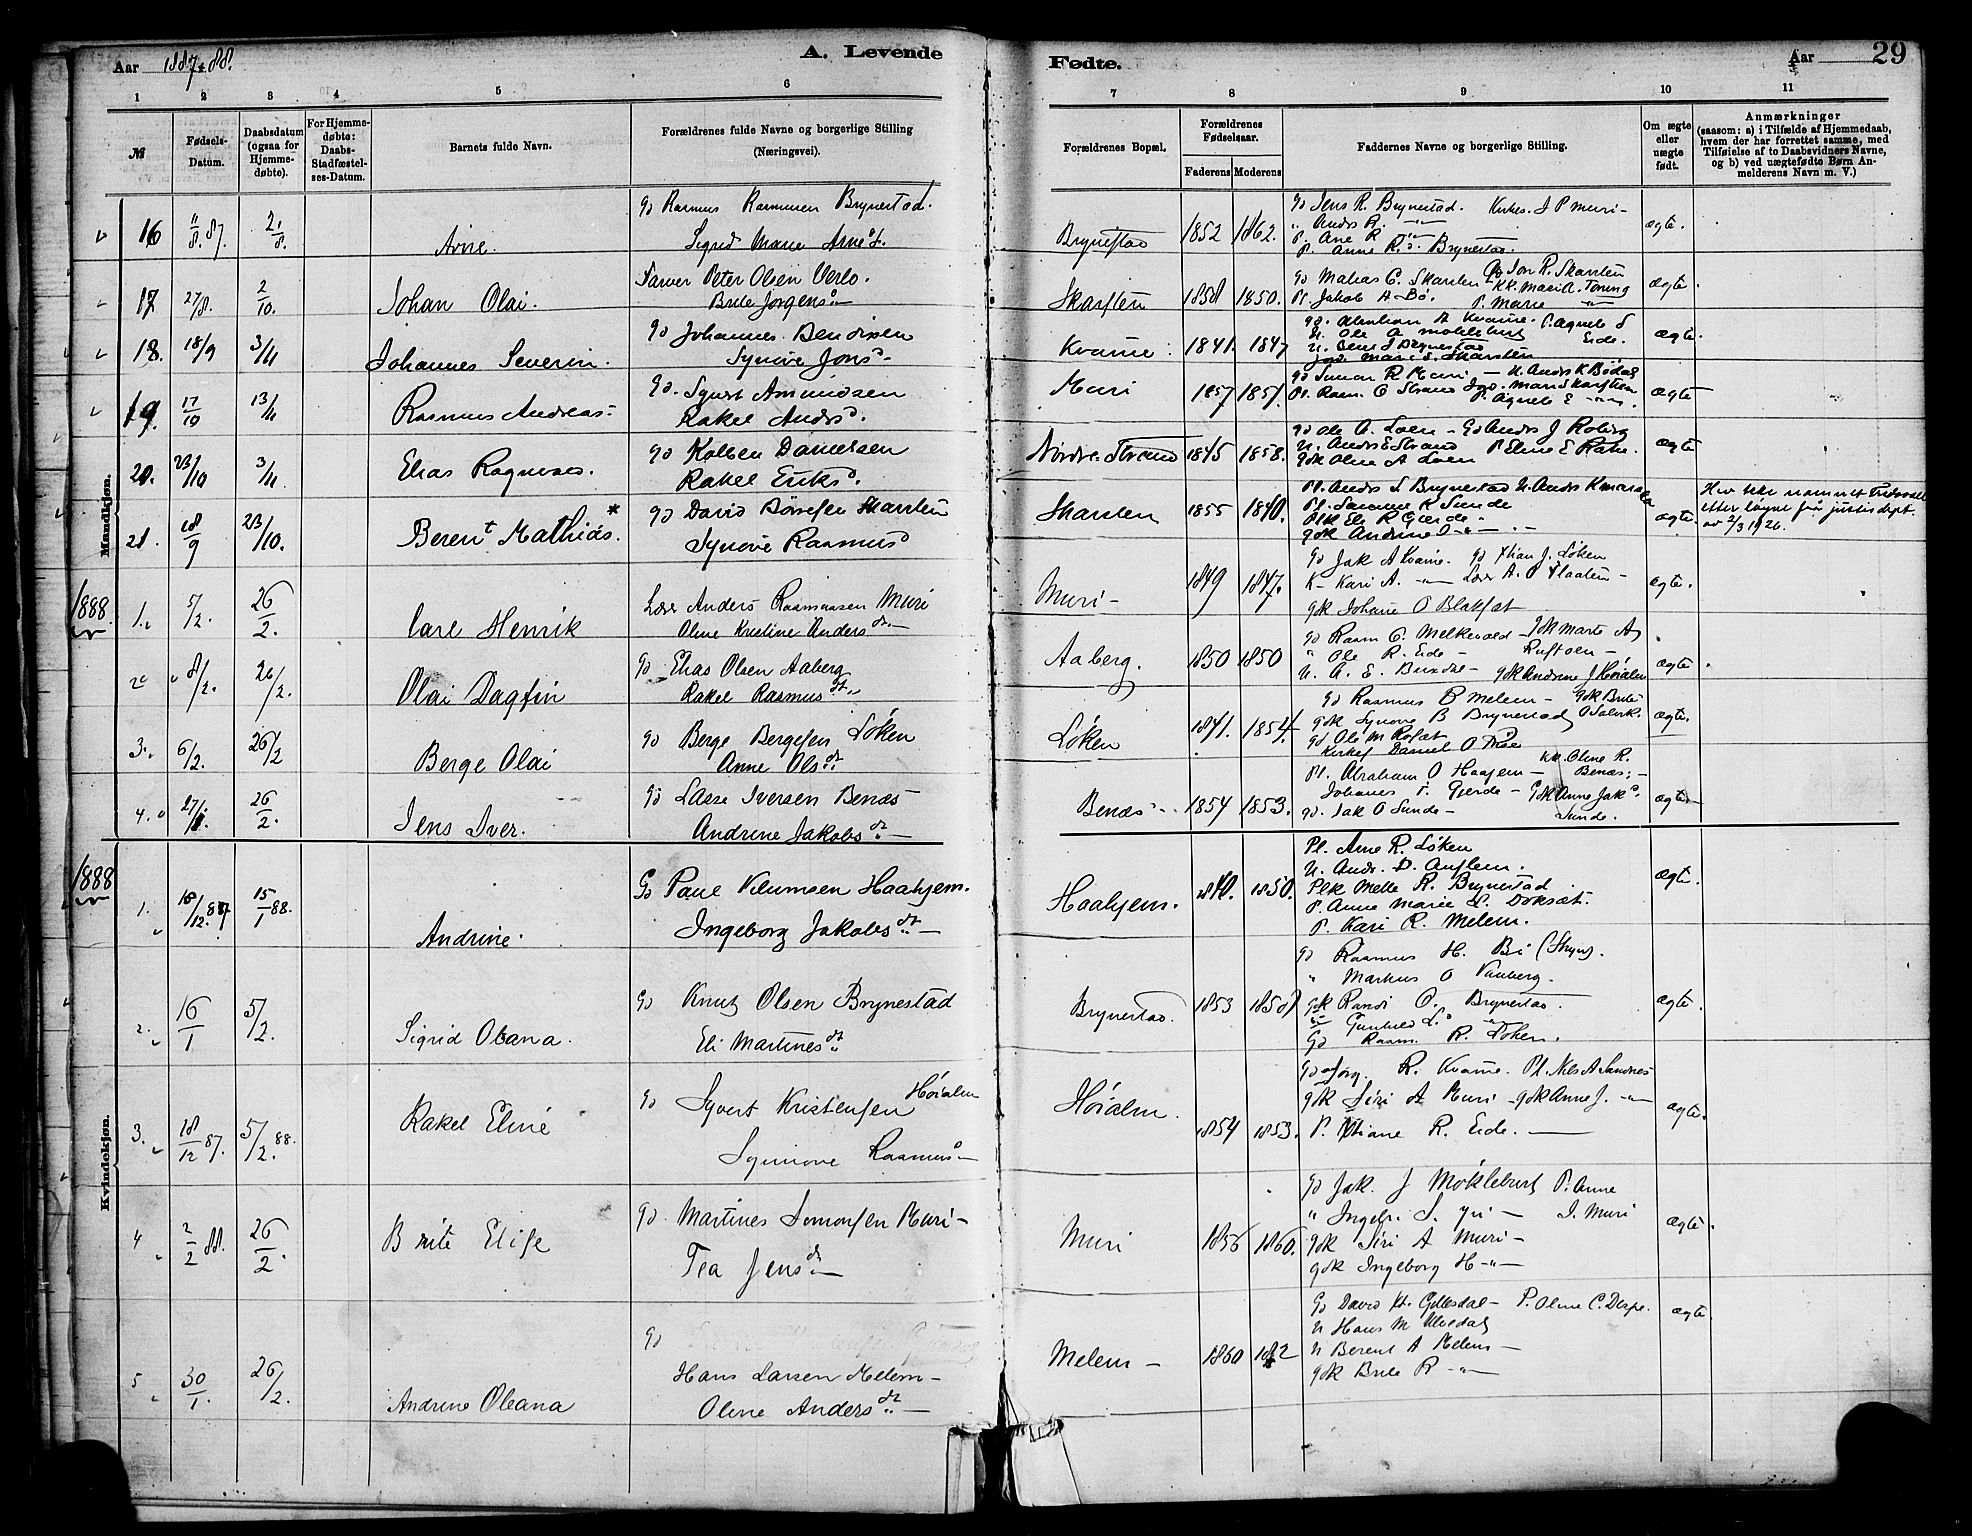 Aar 1887-88.
A. Levende
Fødte.
Aar
29
1 2 3 4 5 6 7 8 9 10 11
№
Fødsels-Datum.
Daabsdatum (ogsaa for Hjemme-døbte).
For Hjemme-døbte: Daabs-Stadfæstel-ses-Datum.
Barnets fulde Navn.
Forældrenes fulde Navne og borgerlige Stilling (Næringsvei).
Forældrenes Bopæl.
Forældrenes Fødselsaar.
Faderens Moderens
Faddernes Navne og borgerlige Stilling.
Om ægte eller nægte født.
Anmærkninger
(saasom: a) i Tilfælde af Hjemmedaab, hvem der har forrettet samme, med Tilføielse af to Daabsvidners Navne, og b) ved uægtefødte Børn Anmelderens Navn m. V.)
Mandkjøn.
16 11/8. 87. 21/8. Arne.
Gd Rasmus Rasmussen Brynestad.
Sigrid Marie Arnesd.
Brynestad 1852 1862.
Gd Jens R. Brynestad. Kirkes. J P Muri -
" Anders R. -"-
P. Ane R -"-
P. Anne R. Brynestad.
ægte.
17 27/8. 2/10. Johan Olai.
Peter Olsen Verlo.
Brite Jørgensd
Skarsten 1858 1850.
Gd Matias C. Skarsten Gd Jon R. Skarsten
Pl. Jakob A Bø. P. Marie -"-
ægte.
18. 18/9 3/11 Johannes Severin.
Gd Johannes Bendixen
Synøve Jonsd.
Kvame. 1841. 1847
Gd. Abraham A Kvame. P. Agnete S Eide.
U. Ole A Møklebust
U. Jens J Brynestad
Mari S. Skarsten
ægte.
19. 17/10 13/11 Rasmus Andreas.
Gd. Syvert Amundsen
Rakel Andrsd.
Muri 1857 1851.
Gd Simon R Muri - U. Anders K Bødal
Pl. Rasm. O Strand Mari Skarsten
P. Agnete E -"-
ægte
20. 23/10 3/11. Elias Ragnvas.
Gd Kolben Danielsen
Rakel Eriksd.
Nordre Strand 1845 1858.
Gd Ole A. Loen - Gd Anders J Roberg
U. Anders E Strand P Eline E Rake.
Gdk Oline A Loen
ægte
21. 18/9 23/10. Berent Mathias.*
Gd David Børesen Skarsten
Synøve Rasmusd
Skarsten 1855 1840.
Pl. Anders S Brynestad U. Anders K
Pl. Rasmus R Sunde
Plk Eli R Gjerde
Gdk Andrine O -"-
ægte.
Har tekt namnet
etter løyve frå justisdept.
av 2/3 1926.
1888
1. 5/2. 26/2. Carl Henrik
Lær Anders Rasmussen Muri
Oline Kristine Andersdt.
Muri - 1849 1847.
Gd Jak A Kvame. Gd Xtian J. Løken
K- Kari A. -"- Lær A. O Flaaten -
Gdk Johane O Blaksæt
ægte.
2 8/2. 26/2. Olai Dagfin
Gd Elias Olsen Aaberg
Rakel Rasmusdt.
Aaberg. 1850 1850
Gd Rasm C. Melkevold - Gdk Marte A
" Ole R. Eide - Rustoen -
U. A. E. Buxdæ - Gdk Andrine J Høialm
ægte
3. 6/2. 26/2 Berge Olai
Gd Berge Bergesen Løken
Anne Olsdt.
Løken 1841. 1854.
Gd Rasmus B Melem - Gdk Brite
Gdk Synøve B Brynestad O Solvik.
Gd Ole M Rofæt
Kirkes Daniel O
ægte.
4. 27/1. 26/2. Jens Iver.
Gd Lasse Iversen Benæs -
Andrine Jakobsdt. -
Benæs - 1854 1853.
Pl. Abraham O Haahjem - kk. Oline R. Benæs. -
Johanes P. Gjerde - Gdk Anne Jak Sunde.
Gd. Jak O Sunde -
ægte -
Kvindekjøn.
1888
1. 18/12. 87 15/1 88. Andrine.
Gd Paul Villumsen Haahjem.
Ingeborg Jakobsdt. -
Haahjem. 1840. 1850.
Pl. Arne R. Løken
U. Andr. D. Auflem.
Plk Melle R. Brynestad
P. Anne Marie L. Doksæt.
P. Kari R. Melem.
ægte.
2. 16/1 5/2. Sigrid Oleana.
Gd Knut Olsen Brynestad
Eli Martinesdt.
Brynestad. 1853 1858
Gd Rasmus H. Bø (Stryn).
" Markus O
Gdk Randi O. Brynestad.
Gunhild L. -"-
Gd Rasm. R. Løken.
ægte.
3. 18/12 87. 5/2. 88. Rakel Eline
Gd Syvert Kristensen Høialm
Synnøve Rasmusd
Høialm. 1854 1853.
Gd Jørg. R. Kvame. Pl. Nils A Sandnes
Gdk Siri A Muri - Gdk Anne J. -"-
P. Xtiane R. Eide.
ægte.
4 2/2 88. 26/2. Brite Elise
Gd. Martines Simonsen Muri -
Tea Jensdt. -
Muri 1856 1860.
Gd Jak. J Møklebust P. Anne
" Ingebr. S. Yri - J. Muri
Gdk Siri A Muri -
Gdk Ingeborg H -"-
ægte.
5 30/1. 26/2. Andrine Oleana
Gd
Hans Larsen Melem -
Oline Andersdt. -
Melem - 1860 1862
Gd David Kr. Gyttesdal - P. Oline C.
U Hans M Ulvedal
U Berent A Melem -
Gdk Brite R -"-
ægte.